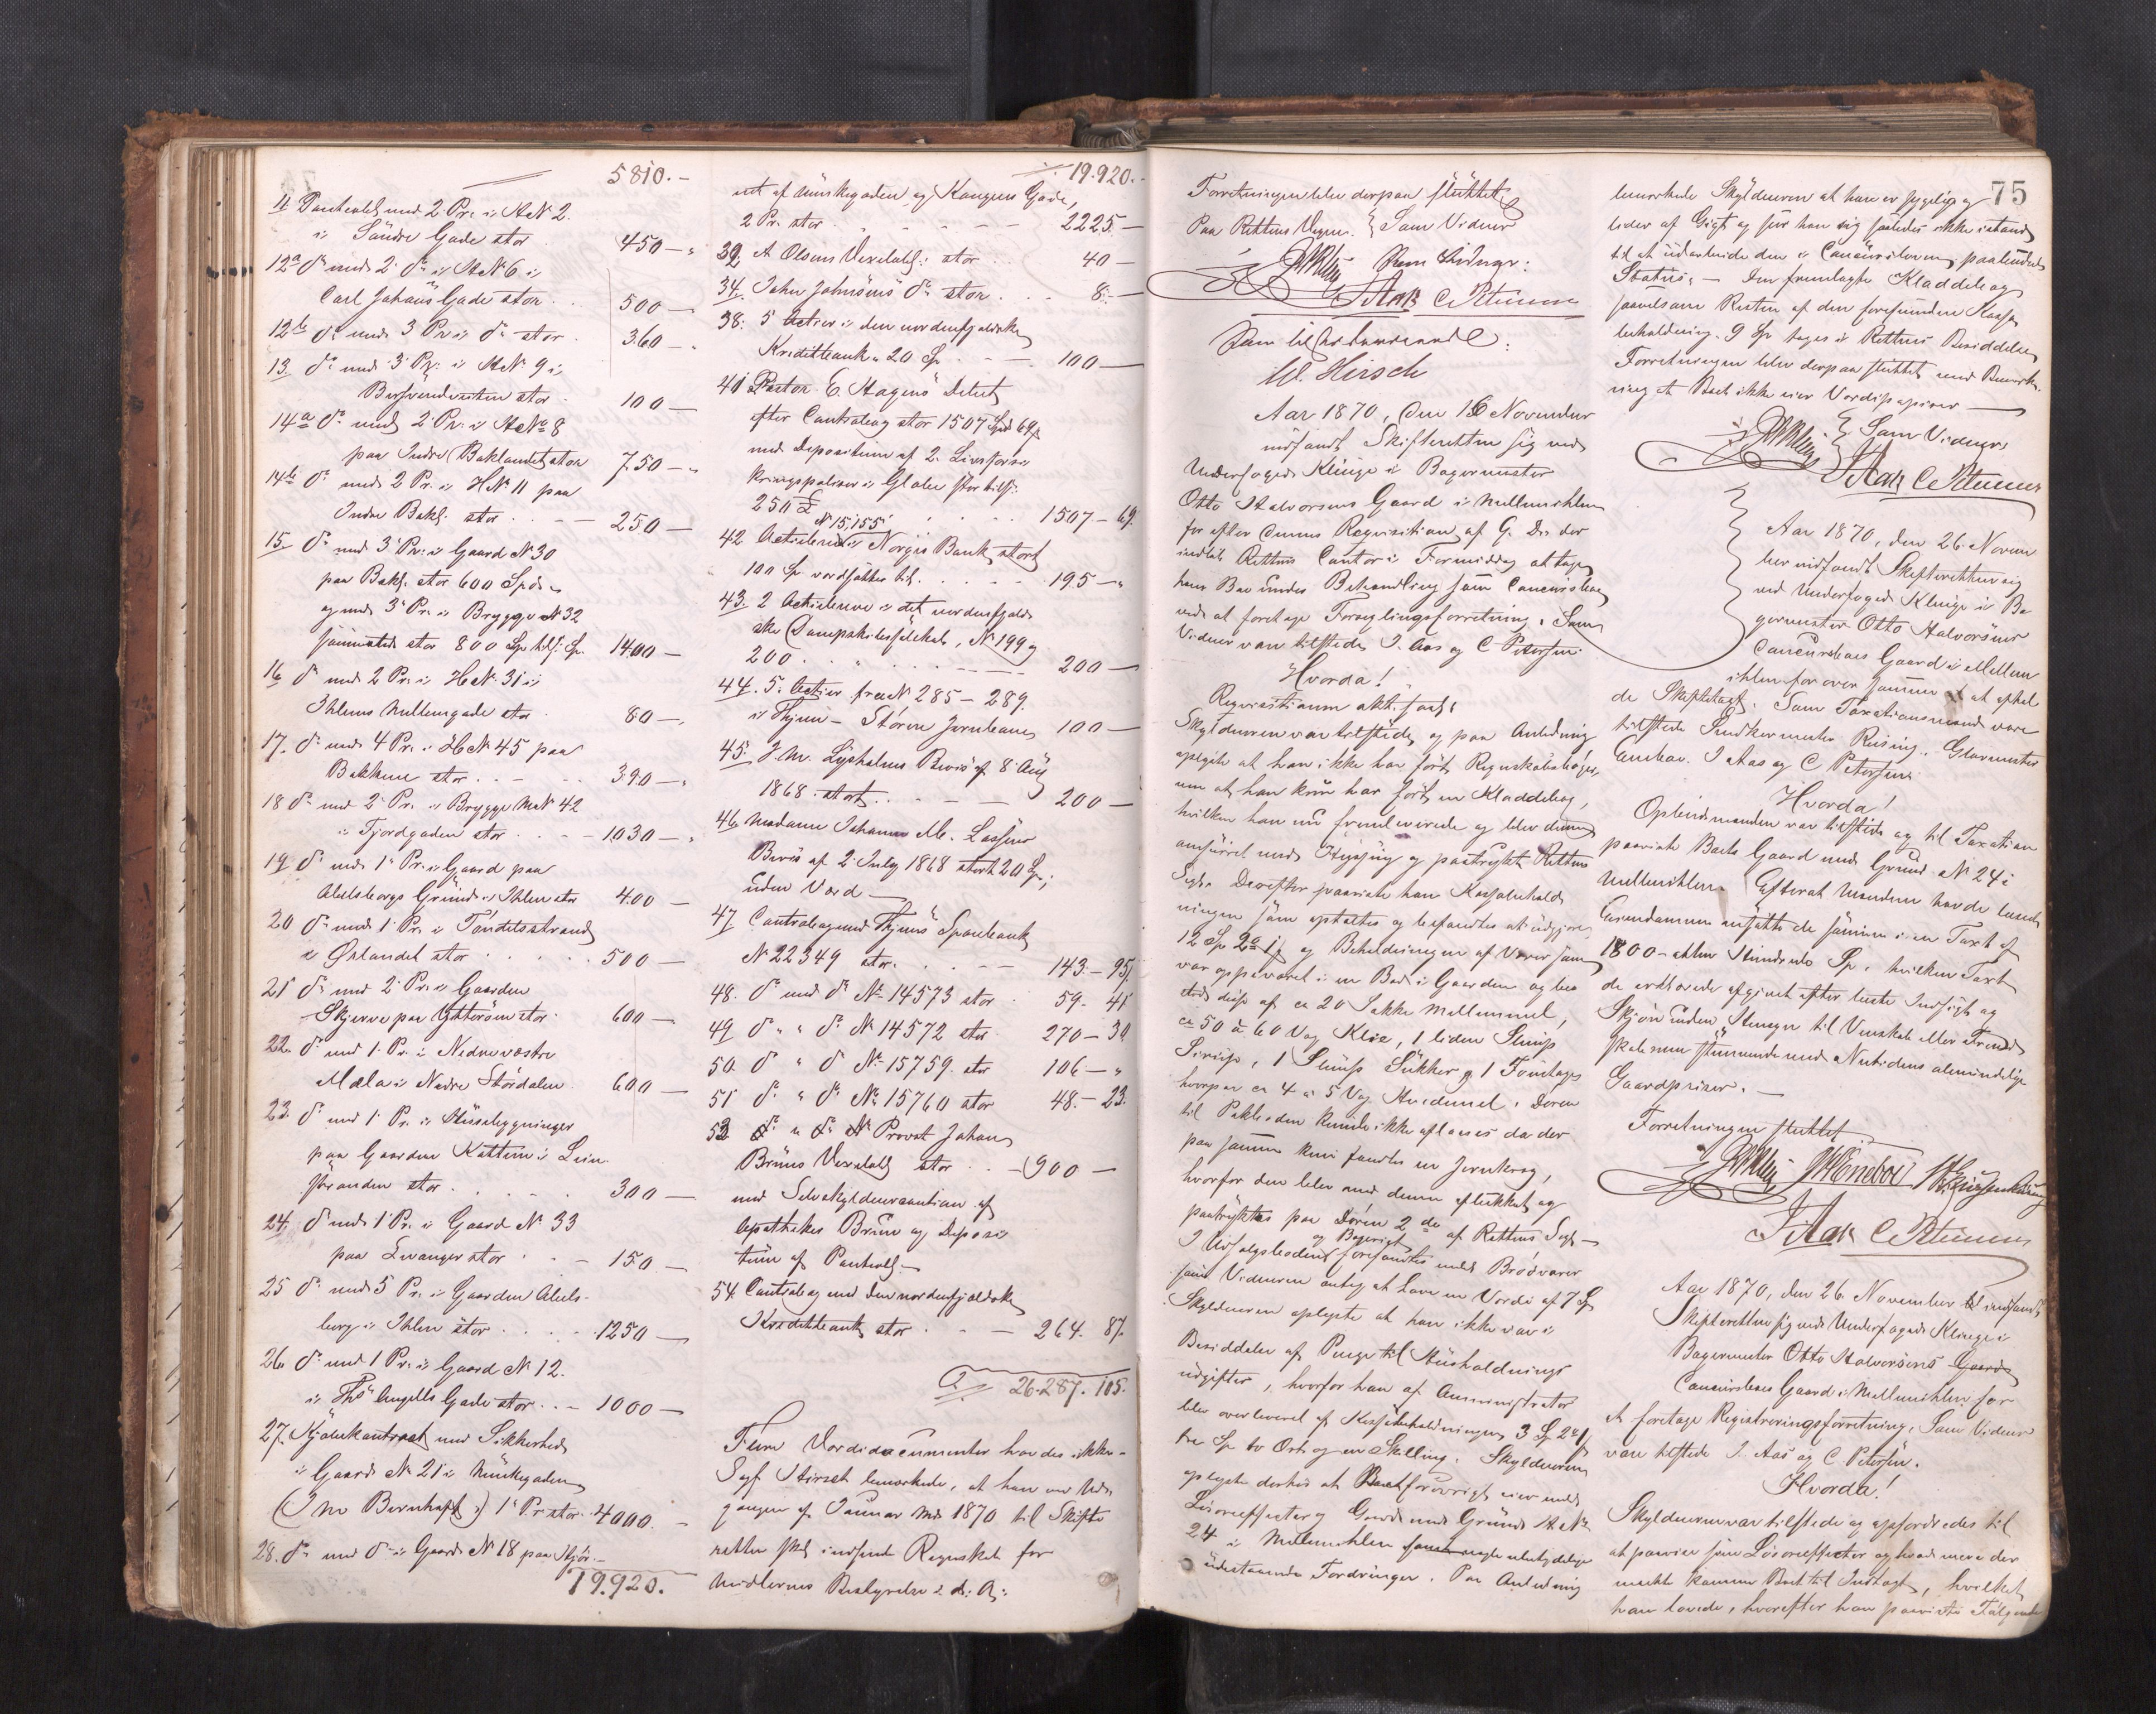 5810.-
11 Pantheold, med 2 Pr. i MN 2.
i Søndre Gade stor 450 - "
12a do med 2 do i MN 6 i
Carl Johans Gade stor . 500 -
12b do med 3 Pr i do stor . 360 - "
13. do med 3 Pr. i MN 9 i
Bersvendveiten stor . 100 -
14a do med 2 Pr. i MNo 8
paa Indre Baklandet stor 750 - "
14b do med 2 Pr. i HN. 11 paa
Indre Bakl. stor . . - 250 -
15. do med 3 Pr: i Gaard N 30
paa Bakl. stor 600 Spd. "
og med 3 Pr. i Brygge N 32
sammesteds stor 800 Sp. tils. Sp. 1400 -
16 do med 2 Pr. i HN. 31 i
Ihlens Mellemgade stor . 80 - "
17. do med 4 Pr. i HN 45 paa
Bakkerne stor . . - . . 390 - "
18 do med 2 Pr. i Brygge MN 42
i Fjordgaden stor . . - - 1030 - "
19 do med 1 Pr. i Gaard paa
Abelsborgs Grund i Ihlen stor 400 -
20 do med 1 Pr. i
i Ørlandet stor . . . . . 500 -
21 do med 2 Pr. i Gaarden
Skjerve paa Ytterøen stor . 600 -
22. do med 1. Pr. i Nedrevestre
Mæla i Nedre Stördalen . 600 -
23. do med 1 Pr. i
paa Gaarden Kattem i Lein
stranden stor . . . . . 300 -
24. do med 1 Pr. i Gaard N 33
paa Levanger stor . . - 150 -
25 do med 5 Pr. i Gaarden Abels-
borg i Ihlen stor . . . . 1250 -
26 do med 1 Pr. i Gaard N 12.
i Ths Angells Gade stor . . - 1000 -
27. Kjøbekontract med Sikkerhed
i Gaard N 21 i Munkegaden
(I M Bernhoft :) 1 Pr stor . 4000. -
28. do med do i Gaard N 18 paa Hjør-
19.920.
./. 19.920.-
net af Munkegaden og Kongens Gade,
2 Pr. stor . . . . - - 2225. -
32. A Olsens Vexelobl: stor . . 40 -
34. John Johnsens do stor . . . 8. -
38: 5 Actier i den nordenfjeldske
Kreditbank a 20 Sp. - - 100 -
41 Pastor E. Hagens Debet
efter Contrabog stor 1507 Spd 69
med Depositum af 2 Livsforsi
kringspolicer i Globe stor tils:
250 £ . . . . 1507 - 69.
N 15,155
42 Actiebrev i Norges Bank, stort
100 Sp. værdsættes til . . . . 195 - "
43. 2 Actiebreve i det nordenfjeld
ske Dampskibsselskab, N 199 og
200 . . " . . . - - 200 -
44. 5. Actier fra N 285 - 289.
i Thjem - Støren Jernbane, 100 -
45. J. M. Lysholms Bevis af 8 Aug
1868. stort . . - - 200 -
46 Madame Johanne M. Lassens
Bevis af 2 July 1868 stort 20 Sp.;
uden Værd -
47 Contrabog med Thjems Sparebank
N 22349 stor . . - - 143. - 95.
48. do med do N 14573 stor . 59. 41
49 do " " do N 14572 stor 270 - 30
50. do " do No 15759. stor 106 - "
51 do " do No 15760 stor 48. - 23.
53 do " do Provst Johan
Bruns Vexelobl stor . . - 900 -
med Selvskyldnercaution af
Apotheker Brun og Deposi
tum af Panteobl. -
54 Contrabog med den nordenfjeldske
Kreditbank stor . . - - 264. 87.
26.287. 105.
Flere Værdidocumenter havdes ikke. -
Sagf. Hirsch bemærkede, at han ved Ud-
gangen af Januar Md 1870 til Skifte
retten skal indsende Regnskab for
Midlernes Bestyrelse i d. A:
Forretningen blev derpaa sluttet
Paa Rettens Vegne. } Som Vidner
Som Vidner:
I Aas C Petersen
Som tilstedeværende:
W. Hirsch
Aar 1870, den 16 November
indfandt Skifteretten sig ved
Underfoged Klinge i Bagermester
Otto Halvorsens Gaard i Mellemihlen
for efter dennes Requisition af G. D. der
indlod. Rettens Contor i Formiddag at tage
hans Bo under Behandling som Concursbo
ved at foretage Forseglingsforretning. Som
Vidner var tilstede, I. Aas og C Petersen.
Hvorda!
Requisitionen aktsaas:
Skyldneren var tilstede og paa Anledning
oplyste at han ikke har ført Regnskabsbøger,
men at han kun har ført en Kladdebog,
hvilken han nu fremleverede og blev denne
omsurret med og paatrykt Rettens
Segl. Derefter paaviste han Kassebehold
ningen som optaltes og befandtes at udgjøre
12 Sp. 2 o 1 s og Beholdningen af Varer som
var oppevaret i en Bod i Gaarden og be
stod disse af ca 20 Sække Mellemmel,
ca 50 à 60 Vog Klie, 1 liden Slump
Sirup, 1 Slump Sukker og 1 Foustage
hvorpaa ca 4 a 5 Vog Hvedemel. Døren
til Pakboden kunde ikke aflaases da der
paa samme kun fandtes en Jernkrog,
hvorfor den blev med denne aflukket og
paatryktes paa Døren 2de af Rettens Segl -
og Bageriet
I Udsalgsboden forefandtes endel Brødvarer
som Vidnerne antog at have en Værdi af 7 Sp.
Skyldneren oplyste at han ikke var i
Besiddelse af Penge til Husholdnings
udgifter, hvorfor han af Administrator
blev overleveret af Kassebeholdningen 3 Sp. 2 o 1 s
tre Sp. to Ort og en Skilling. Skyldneren
oplyste derhos at Boet forøvrigt eier endel
Løsøreeffecter og Gaard med Grund MNo
24 i Mellemihlen samt nogle ubetydelige
udestaaende Fordringer. Paa Anledning
75
bemærkede Skyldneren at han er sygelig og
lider af Gigt og ser han sig saaledes ikke istand
til at udarbeide den i Concursloven paabudne
Status. - Den fremlagte Kladdebog
saavelsom Resten af den forefundne Kasse
beholdning 9 Sp. toges i Rettens Besiddelse
Forretningen blev derpaa sluttet med Bemærk-
ning at Boet ikke eier Værdipapirer -
} Som Vidner
I Aas C Petersen
Aar 1870, den 26 Novem
ber indfandt Skifteretten sig
ved Underfoged Klinge i Ba
germester Otto Halvorsens
Concursboes Gaard i Mellem
ihlen for over samme at afhol
de Skiftetaxt. Som Taxationsmænd vare
tilstede Snedkermester Reising, Glarmester
Eneboe. I Aas og C Petersen.
Hvorda!
Opbudsmanden var tilstede og til Taxation
paaviste Boets Gaard med Grund N 24 i
Mellemihlen. Efterat Mændene havde beseet
Eiendommen ansatte de samme i en Taxt af
1800 - atten Hundrede Sp., hvilken Taxt
de erklærede afgivet efter bedste Indsigt og
Skjøn uden Hensyn til Venskab eller Fiend
skab men stemmende med Nutidens almindelige
Gaardpriser. -
Forretningen sluttet
I Aas C Petersen
Aar 1870, den 26 November indfandt
Skifteretten sig ved Underfoged Klinge i
Bagermester Otto Halvorsens Gaard
Concursboes Gaard i Mellemihlen for
at foretage Registreringsforretning. Som Vidner
vare tilstede I. Aas og C. Petersen.
Hvorda!
Skyldneren var tilstede og opfordredes til
at paavise sine Løsøreeffecter og hvad mere der
maatte komme Boet til Indtægt, hvilket
han lovede, hvorefter han paaviste Følgende